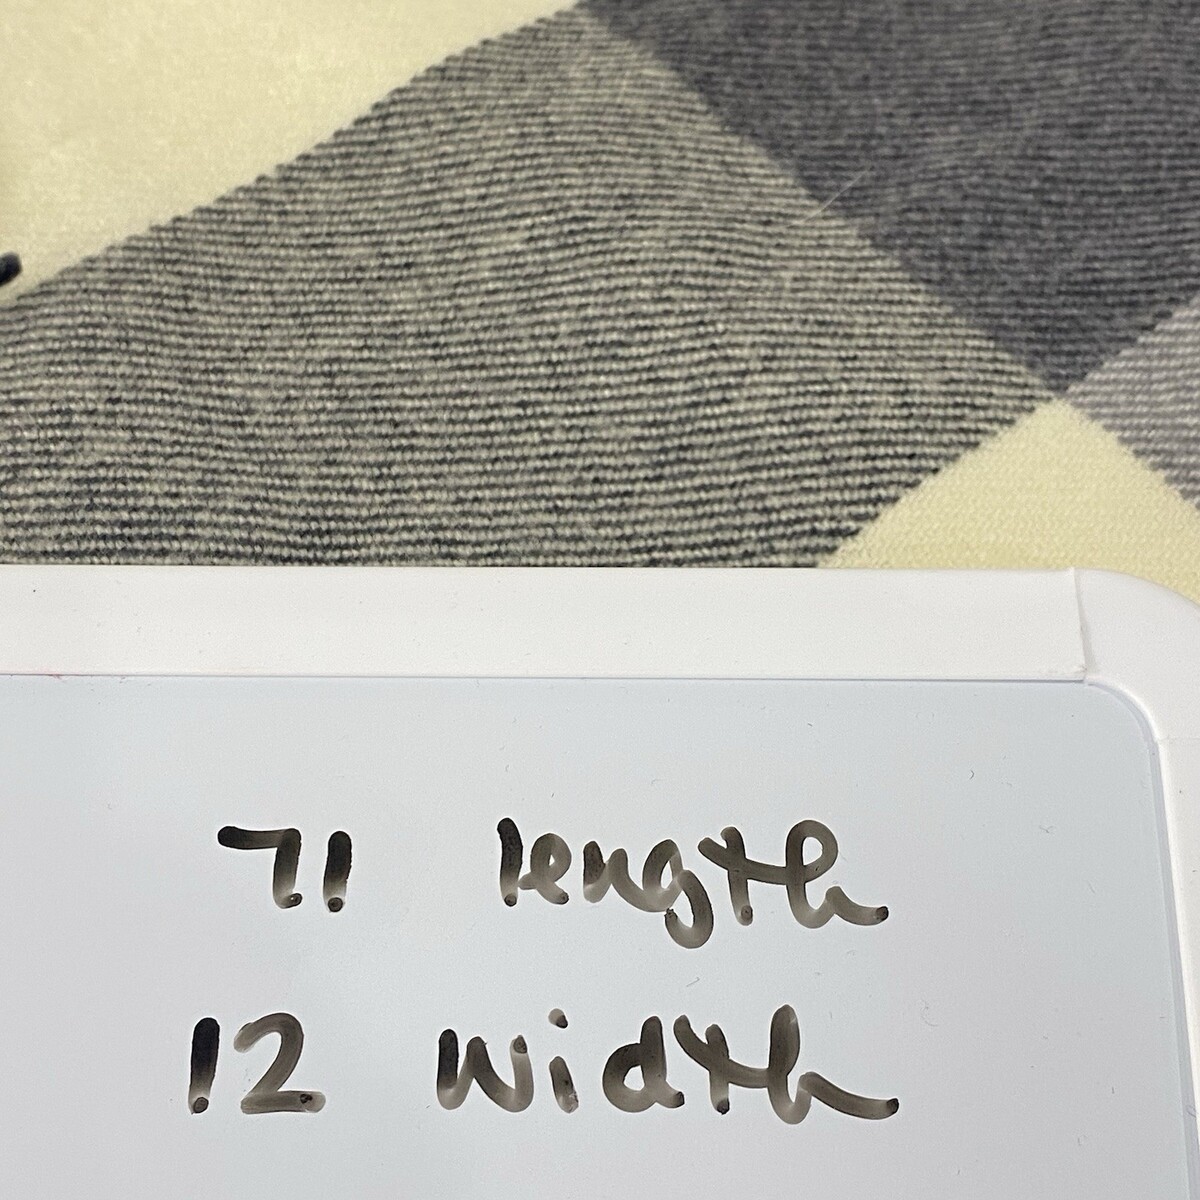 71 length
12 width